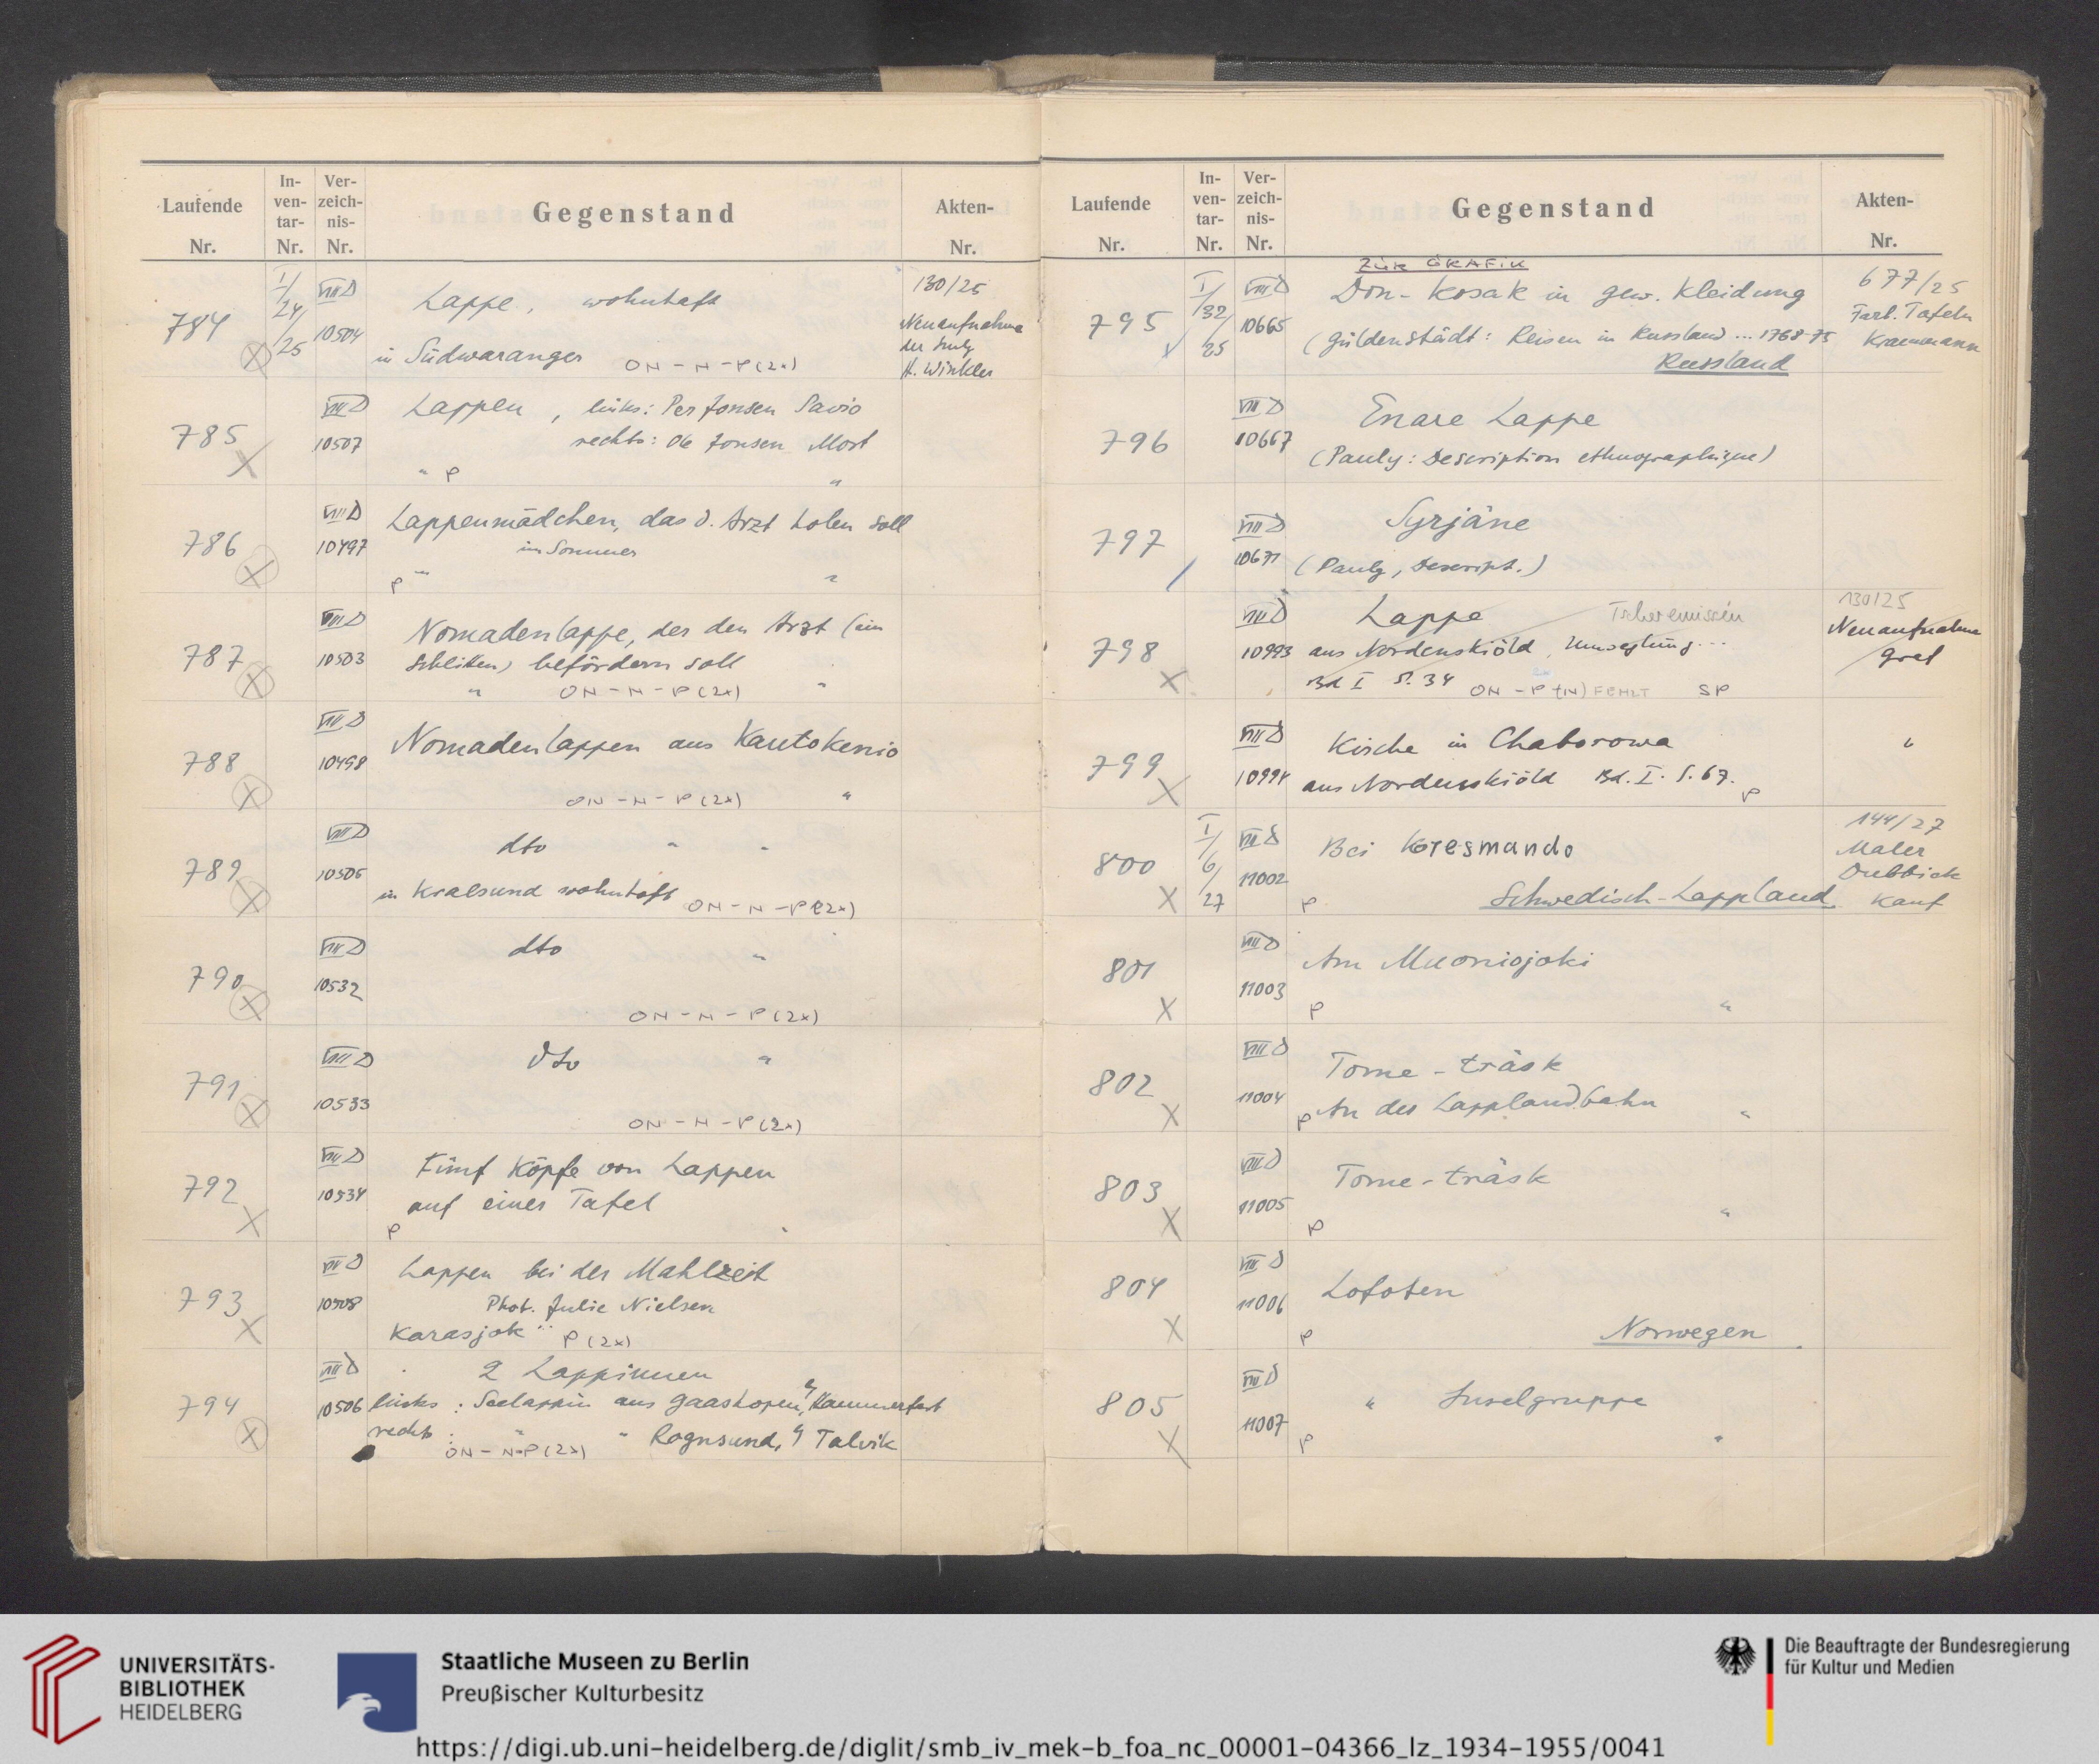 Laufende Nr.
In-ven-tar-Nr.
Ver-zeich-nis-Nr.
Gegenstand
Akten-Nr.
784
I/24/25
VIII D
10504
Lappe, wohnhaft
in Südwaranger ON - N - P (2x)
130/25
Neuaufnahme
der
H. Winkler
785
VIII D
10507
Lappen, links: Per Jonsen Savio
rechts: Ole Jonsen Mort
" P "
786
VIII D
10497
Lappenmädchen, das d. Arzt holen soll
im Sommer
P " "
787
VIII D
10503
Nomadenlappe, der den Arzt (im
Schlitten) befördern soll
" ON - N - P (2x) "
788
VIII D
10498
Nomadenlappen aus Kautokenio
ON - N - P (2x) "
789
VIII D
10505
dto " "
in Kralsund wohnhaft ON - N - P (2x)
790
VIII D
10532
dto "
ON - N - P (2x)
791
VIII D
10533
dto "
ON - N - P (2x)
792
VIII D
10534
Fünf Köpfe von Lappen
auf einer Tafel
P "
793
VIII D
10508
Lappen bei der Mahlzeit
Phot. Julie Nielsen
Karasjok P (2x)
794
VIII D
10506
2 Lappinnen
links: Seelappin aus Gaashopen, Hammerfest
rechts: " " Rognsund, Talvik
ON - N - P (2x)
Laufende Nr.
In-ven-tar-Nr.
Ver-zeich-nis-Nr.
Gegenstand
Akten-Nr.
ZUR GRAFIK
795
I/32/25
VIII D
10665
Don-Kosak in gew. Kleidung
(Güldenstädt: Reisen in Russland ... 1768-75
Russland
677/25
Farb. Tafeln
Kraemerann
796
VIII D
10667
Enare Lappe
(Pauly: Description ethnographique)
797
VIII D
10671
Syrjäne
(Pauly, Descript.)
798
VIII D
10993
Lappe Tscheremissin
aus Nordenskiöld, Umseglung...
Bd I S. 34 ON - P (N) FEHLT SP
130/25
Neuaufnahme
Gref
799
VIII D
10994
Kirche in Chaborowa
aus Nordenskiöld Bd. I. S. 67. P
"
800
I/6/27
VIII D
11002
Bei Koresmando
P Schwedisch-Lappland
144/27
Maler
Kauf
801
VIII D
11003
Am Muoniojoki
P "
802
VIII D
11004
Torne-träsk
P An der Lapplandbahn "
803
VIII D
11005
Torne-träsk
P "
804
VIII D
11006
Lofoten
P Norwegen
805
VIII D
11007
" Inselgruppe
P "
UNIVERSITÄTS-
BIBLIOTHEK
HEIDELBERG
Staatliche Museen zu Berlin
Preußischer Kulturbesitz
Die Beauftragte der Bundesregierung
für Kultur und Medien
https://digi.ub.uni-heidelberg.de/diglit/smb_iv_mek-b_foa_nc_00001-04366_lz_1934-1955/0041